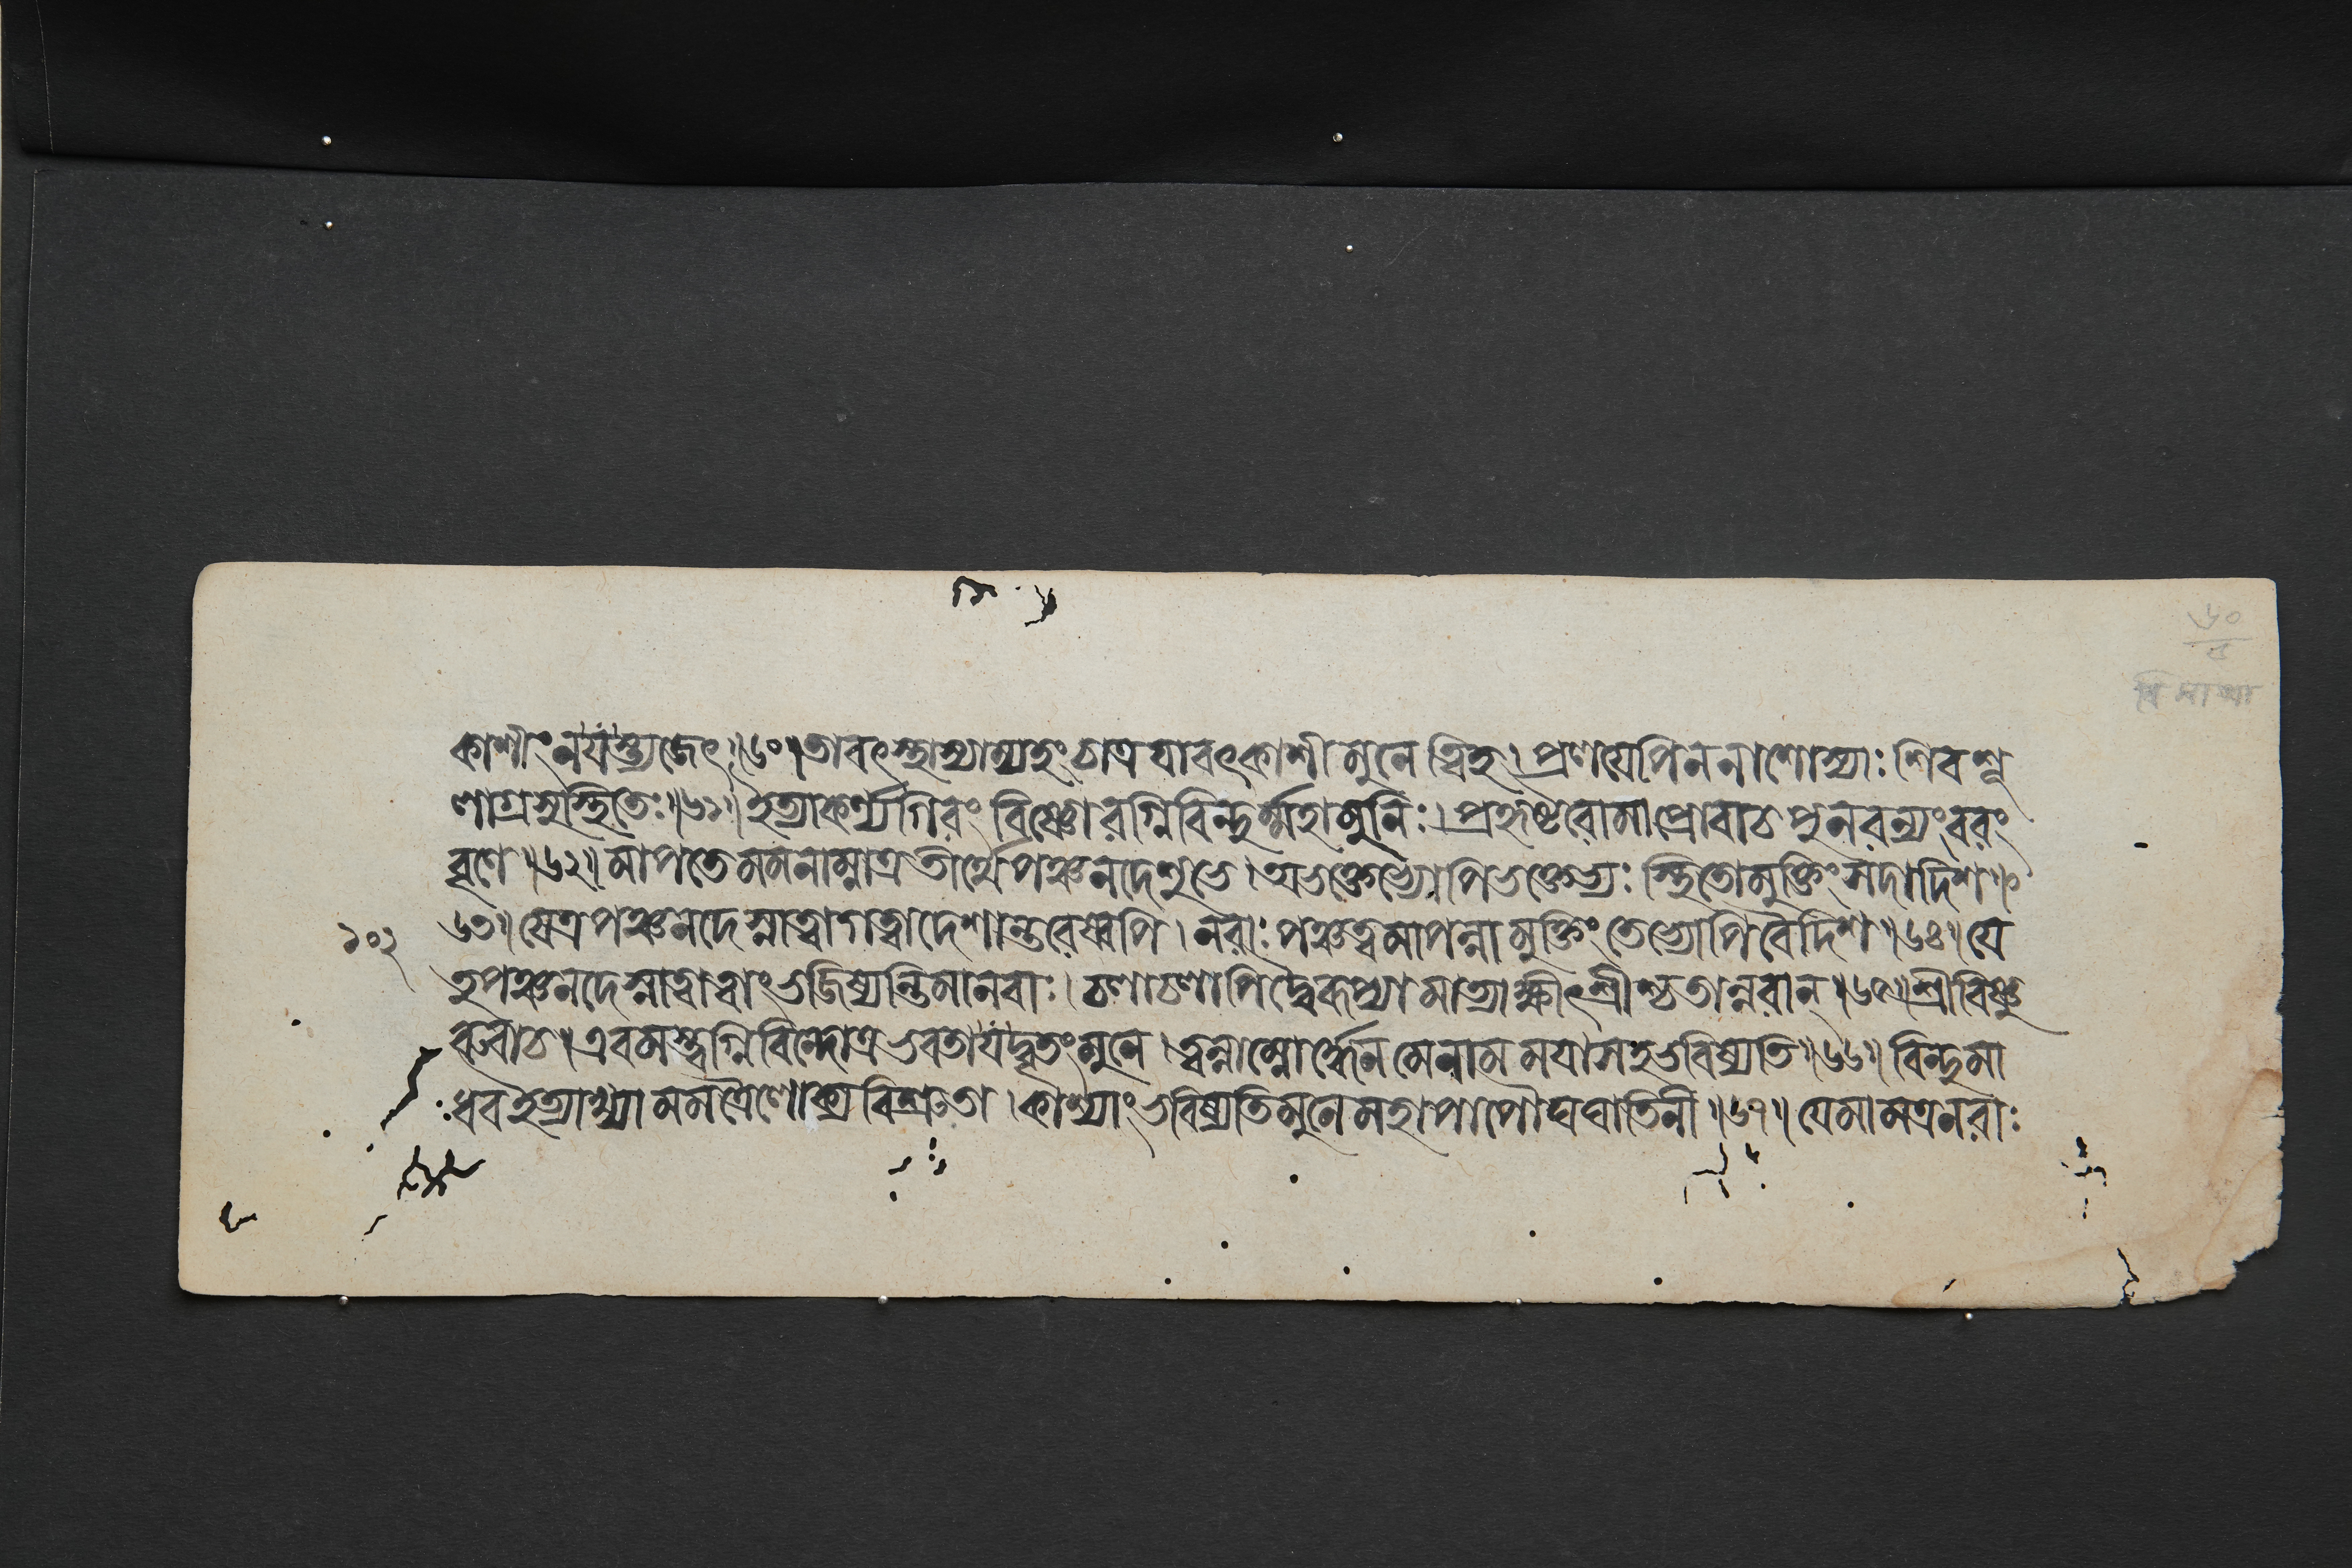 কাশীং ন যস্ত্যজেৎ ॥ ৬০ ॥ তাবৎস্থাস্যাম্যহং চাত্র যাবৎকাশী মুনে ত্বিহ । প্রলয়েপি ন নাশোস্যাঃ শিবশূ
লাগ্রসুস্থিতেঃ ॥ ৬১ ॥ ইত্যাকর্ণ্য গিরং বিষ্ণোরগ্নিবিন্দুর্ম্মহামুনিঃ । প্রহৃষ্টরোমা প্রোবাচ পুনরন্যং বরং
বৃণে ॥ ৬২ ॥ মাপতে মম নাম্নাত্র তীর্থে পঞ্চনদে শুভে । অভক্তেভ্যোপি ভক্তেভ্যঃ স্থিতো মুক্তিং সদা দিশ ॥
৬৩ ॥ যেত্র পঞ্চনদে স্নাত্বা গত্বা দেশান্তরেষ্বপি । নরাঃ পঞ্চত্বমাপন্না মুক্তিং তেভ্যোপি বৈ দিশ ॥ ৬৪ ॥ যে
১০২
তু পঞ্চনদে স্নাত্বা ত্বাং ভজিষ্যন্তি মানবাঃ । চলাচলাপি দ্বৈরূপ্যা মা ত্যাক্ষীৎ শ্রীশ্চ তান্নরান্ ॥ ৬৫ ॥ শ্রীবিষ্ণু
রুবাচ । এবমস্ত্বগ্নিবিন্দোত্র ভবতা যদ্বৃতং মুনে । ত্বন্নাম্নোর্দ্ধেন মে নাম ময়া সহ ভবিষ্যতি ॥ ৬৬ ॥ বিন্দুমা
ধব ইত্যাখ্যা মম ত্রৈলোক্যবিশ্রুতা । কাশ্যাং ভবিষ্যতি মুনে মহাপাপৌঘঘাতিনী ॥ ৬৭ ॥ যে মামত্র নরাঃ